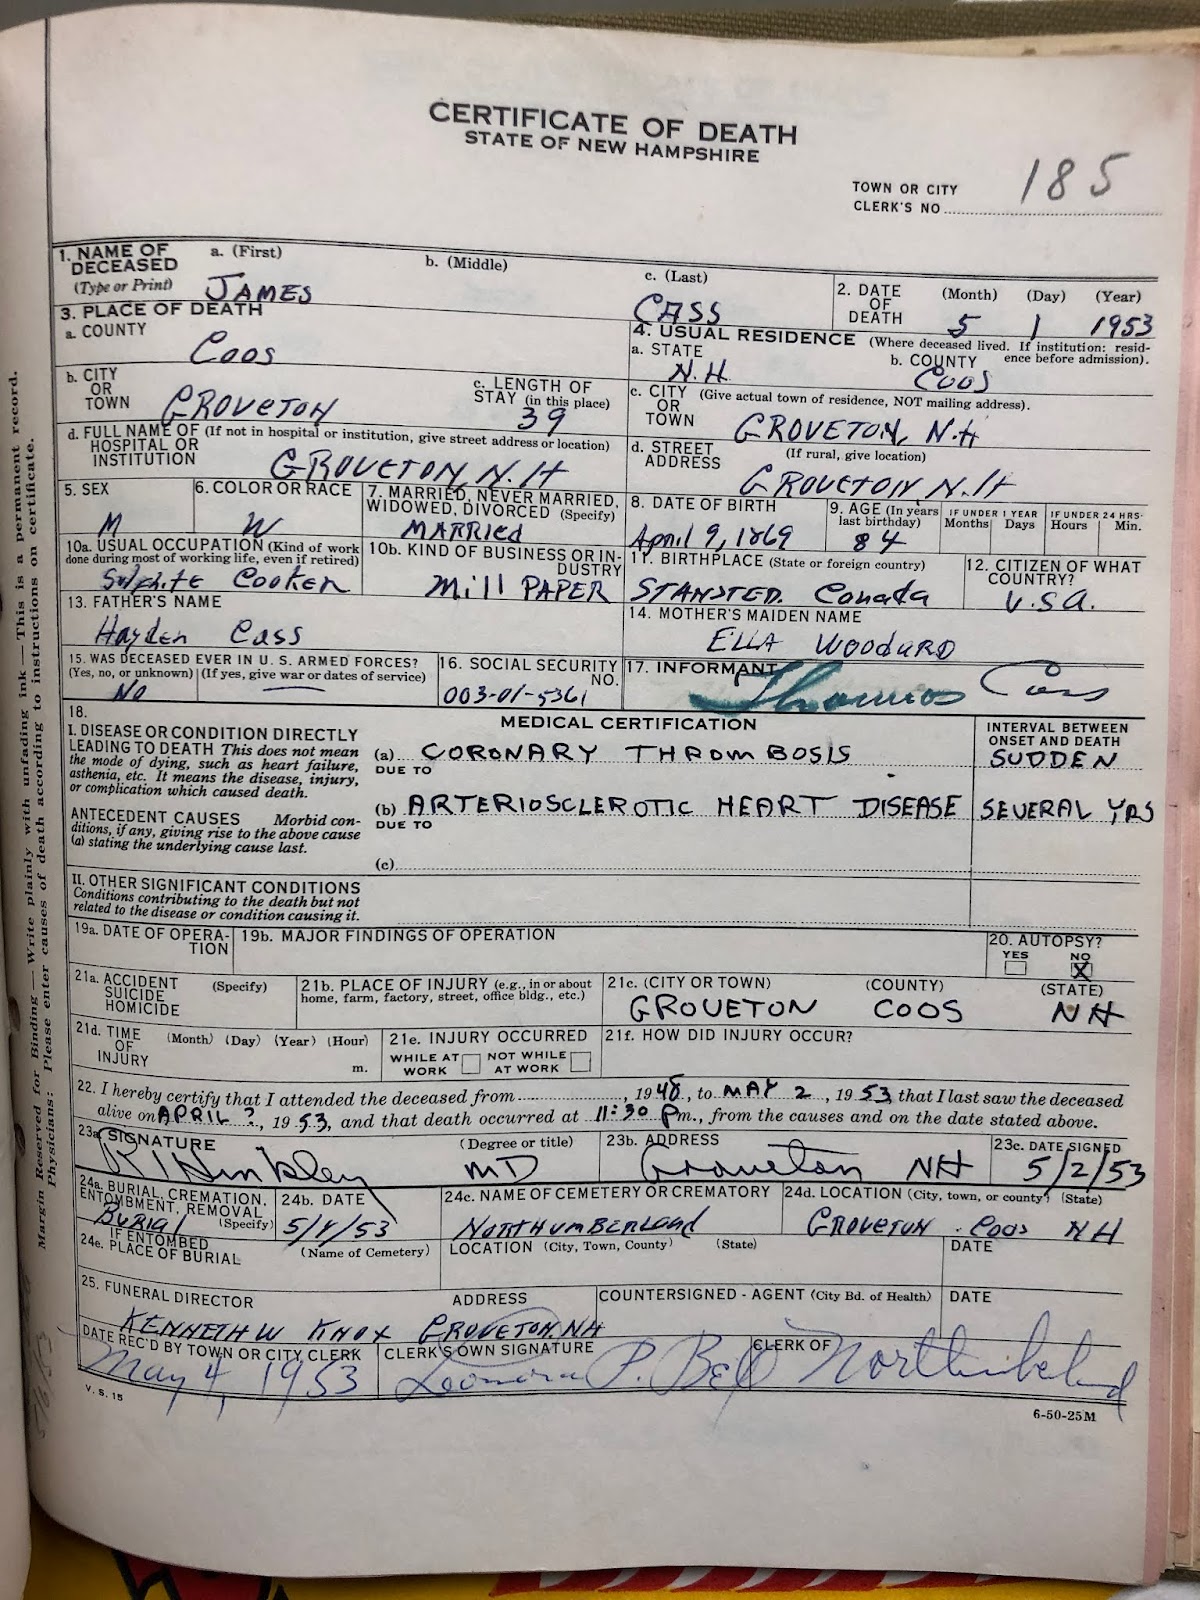 CERTIFICATE OF DEATH
STATE OF NEW HAMPSHIRE
TOWN OR CITY
CLERK'S NO. 185
1. NAME OF DECEASED (Type or Print) a. (First) b. (Middle) c. (Last)
JAMES CASS
2. DATE OF DEATH (Month) (Day) (Year)
5 1 1953
3. PLACE OF DEATH
a. COUNTY
Coos
4. USUAL RESIDENCE (Where deceased lived. If institution: residence before admission).
a. STATE N.H. b. COUNTY Coos
b. CITY OR TOWN GROVETON
c. LENGTH OF STAY (in this place) 39
c. CITY OR TOWN (Give actual town of residence, NOT mailing address).
GROVETON, N.H
d. FULL NAME OF HOSPITAL OR INSTITUTION (If not in hospital or institution, give street address or location)
GROVETON, N.H
d. STREET ADDRESS (If rural, give location)
GROVETON N.H
5. SEX M
6. COLOR OR RACE W
7. MARRIED, NEVER MARRIED, WIDOWED, DIVORCED (Specify)
MARRIED
8. DATE OF BIRTH
April 9, 1869
9. AGE (In years last birthday) 84
IF UNDER 1 YEAR Months Days
IF UNDER 24 HRS. Hours Min.
10a. USUAL OCCUPATION (Kind of work done during most of working life, even if retired)
Sulphite Cooker
10b. KIND OF BUSINESS OR INDUSTRY
Mill PAPER
11. BIRTHPLACE (State or foreign country)
STANSTED. Canada
12. CITIZEN OF WHAT COUNTRY?
U.S.A.
13. FATHER'S NAME
Hayden Cass
14. MOTHER'S MAIDEN NAME
ELLA WOODARD
15. WAS DECEASED EVER IN U. S. ARMED FORCES?
(Yes, no, or unknown) (If yes, give war or dates of service)
NO
16. SOCIAL SECURITY NO.
003-01-5361
17. INFORMANT
Thomas Cass
18. MEDICAL CERTIFICATION
INTERVAL BETWEEN ONSET AND DEATH
I. DISEASE OR CONDITION DIRECTLY LEADING TO DEATH This does not mean the mode of dying, such as heart failure, asthenia, etc. It means the disease, injury, or complication which caused death.
(a) CORONARY THROMBOSIS SUDDEN
DUE TO
ANTECEDENT CAUSES Morbid conditions, if any, giving rise to the above cause (a) stating the underlying cause last.
(b) ARTERIOSCLEROTIC HEART DISEASE SEVERAL YRS
DUE TO
(c)
II. OTHER SIGNIFICANT CONDITIONS
Conditions contributing to the death but not related to the disease or condition causing it.
19a. DATE OF OPERATION
19b. MAJOR FINDINGS OF OPERATION
20. AUTOPSY?
YES NO X
21a. ACCIDENT SUICIDE HOMICIDE (Specify)
21b. PLACE OF INJURY (e.g., in or about home, farm, factory, street, office bldg., etc.)
21c. (CITY OR TOWN) (COUNTY) (STATE)
GROVETON COOS NH
21d. TIME OF INJURY (Month) (Day) (Year) (Hour) m.
21e. INJURY OCCURRED
WHILE AT WORK NOT WHILE AT WORK
21f. HOW DID INJURY OCCUR?
22. I hereby certify that I attended the deceased from , 1948, to MAY 2, 1953 that I last saw the deceased
alive on APRIL ?, 1953, and that death occurred at 11:30 Pm., from the causes and on the date stated above.
23a. SIGNATURE (Degree or title)
Hinkley MD
23b. ADDRESS
Groveton NH
23c. DATE SIGNED
5/2/53
24a. BURIAL, CREMATION, ENTOMBMENT, REMOVAL (Specify)
BURIAL
24b. DATE
5/4/53
24c. NAME OF CEMETERY OR CREMATORY
NORTHUMBERLAND
24d. LOCATION (City, town, or county) (State)
GROVETON. Coos NH
24e. IF ENTOMBED PLACE OF BURIAL (Name of Cemetery)
LOCATION (City, Town, County) (State)
DATE
25. FUNERAL DIRECTOR ADDRESS
KENNETH W KNOX GROVETON. NH
COUNTERSIGNED - AGENT (City Bd. of Health)
DATE
DATE REC'D BY TOWN OR CITY CLERK
May 4, 1953
CLERK'S OWN SIGNATURE
Leonora P. Bell
CLERK OF Northumberland
V. S. 15
6-50-25M
Margin Reserved for Binding — Write plainly with unfading ink — This is a permanent record.
Physicians: Please enter causes of death according to instructions on certificate.